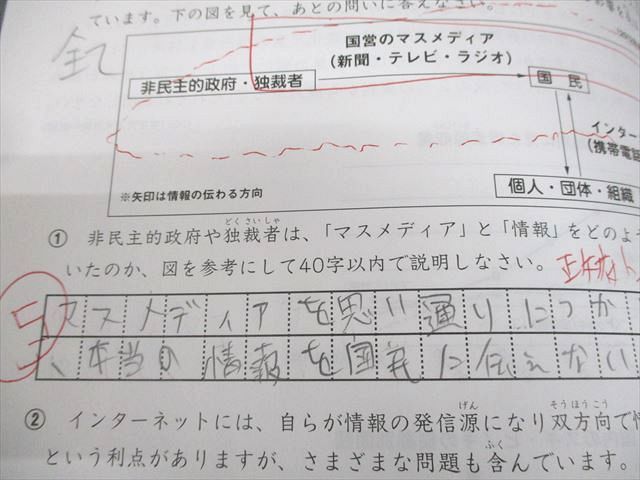 ています。下の図を見て、あとの問いに答えなさい。
国営のマスメディア
(新聞・テレビ・ラジオ)
非民主的政府・独裁者
国 民
インター
(携帯電話
※矢印は情報の伝わる方向
個人・団体・組織
① 非民主的政府や独裁者は、「マスメディア」と「情報」をどのよ
いたのか、図を参考にして40字以内で説明しなさい。
マスメディアを思い通りにつか
、本当の情報を国民に伝えない
② インターネットには、自らが情報の発信源になり双方向で情
という利点がありますが、さまざまな問題も含んでいます。